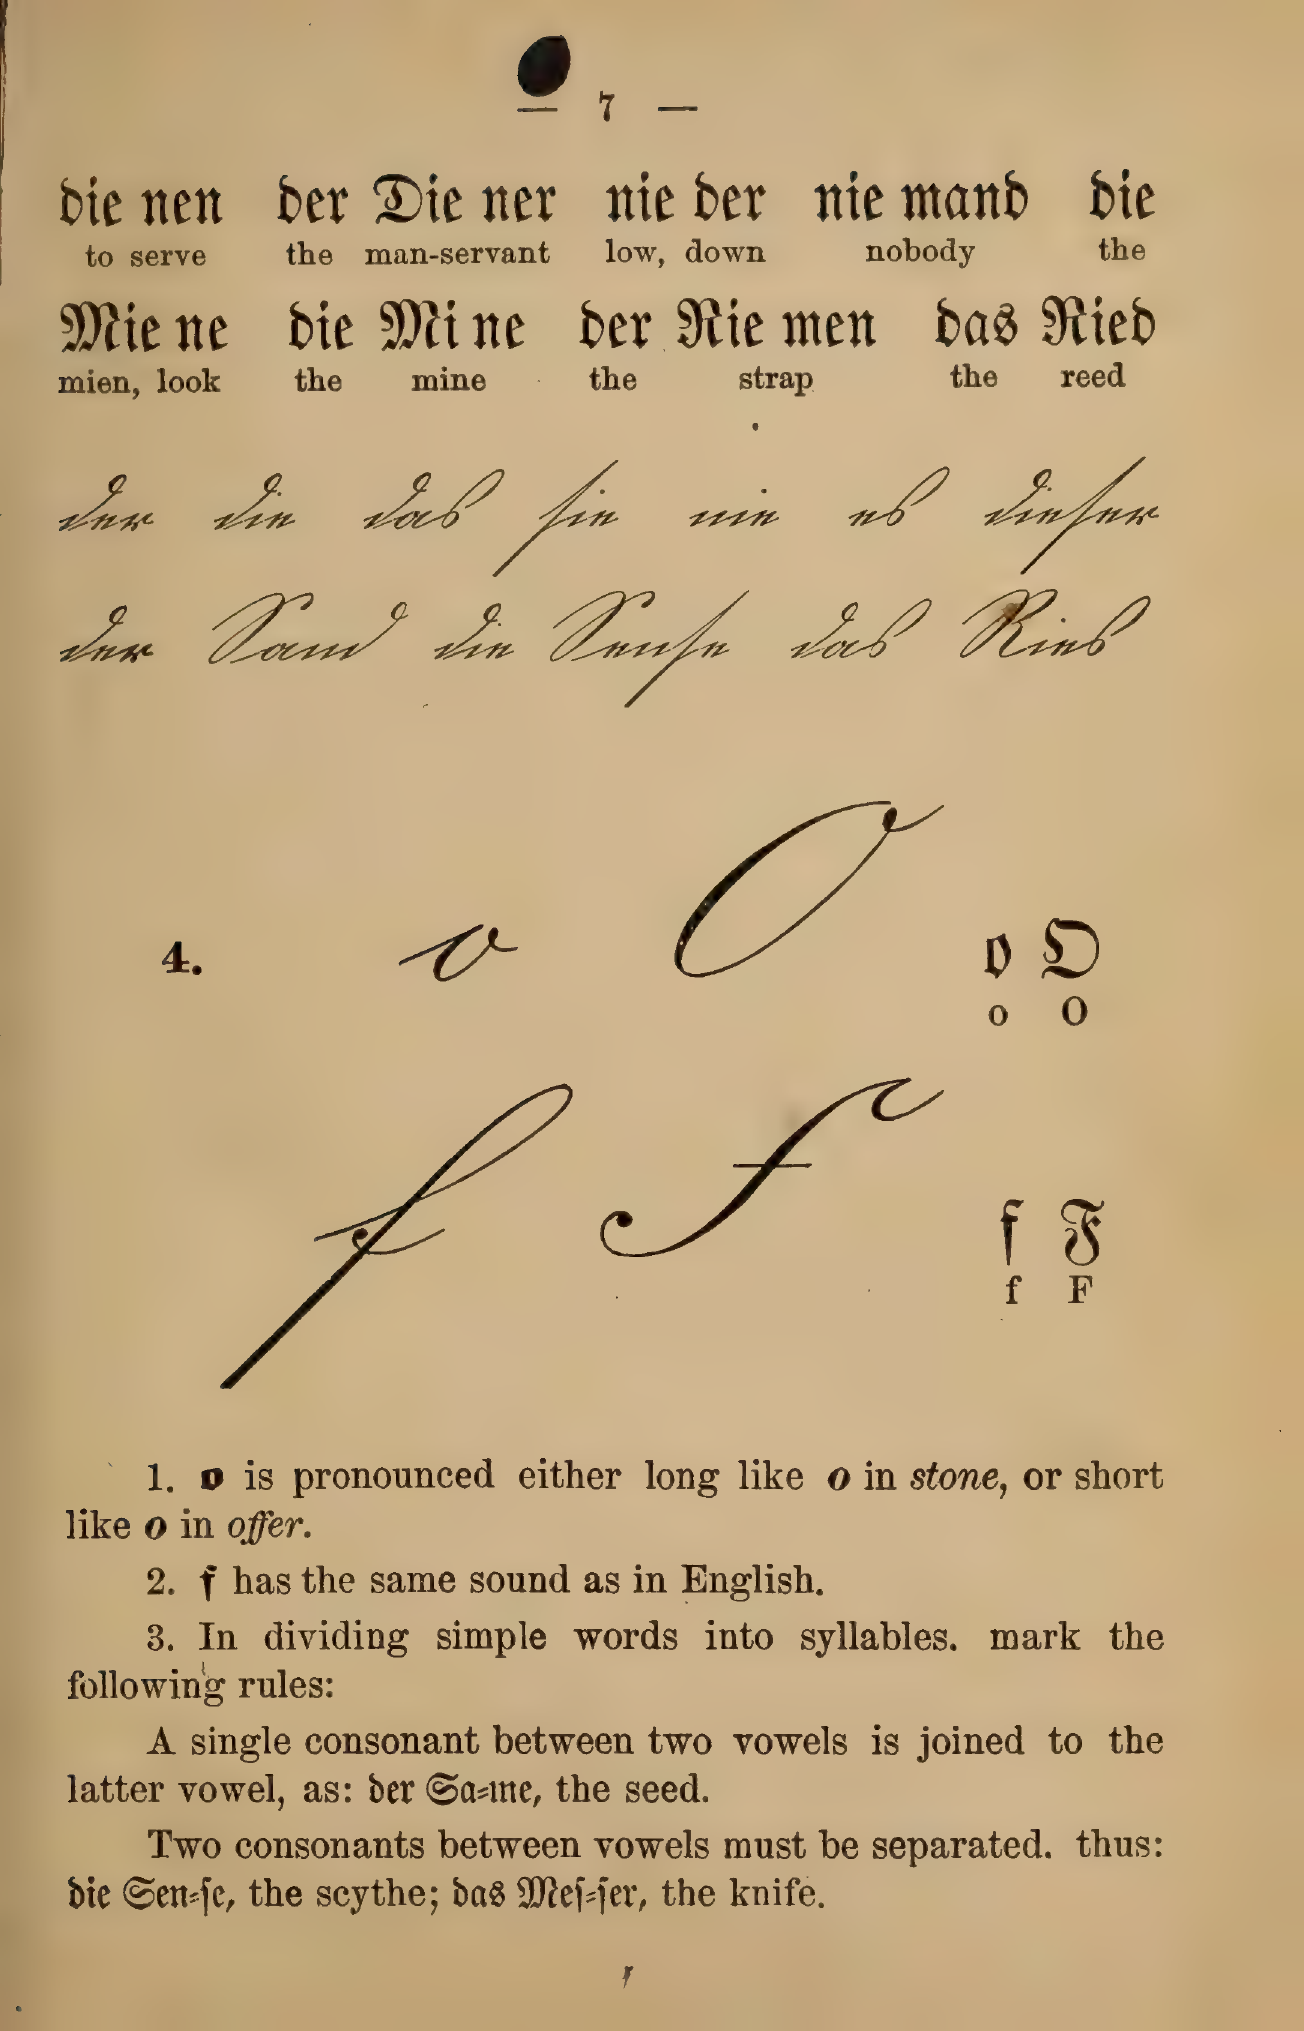 — 7 —
die nen der Die ner nie der nie mand die
to serve the man-servant low, down nobody the
Mie ne die Mi ne der Rie men das Ried
mien, look the mine the strap the reed
der die das sie nie es dieser
der Sand die Sense das Ries
4. o O o O
o O
f F f F
f F
1. o is pronounced either long like o in stone, or short
like o in offer.
2. f has the same sound as in English.
3. In dividing simple words into syllables. mark the
following rules:
A single consonant between two vowels is joined to the
latter vowel, as: der Sa-me, the seed.
Two consonants between vowels must be separated. thus:
die Sen-se, the scythe; das Mes-ser, the knife.